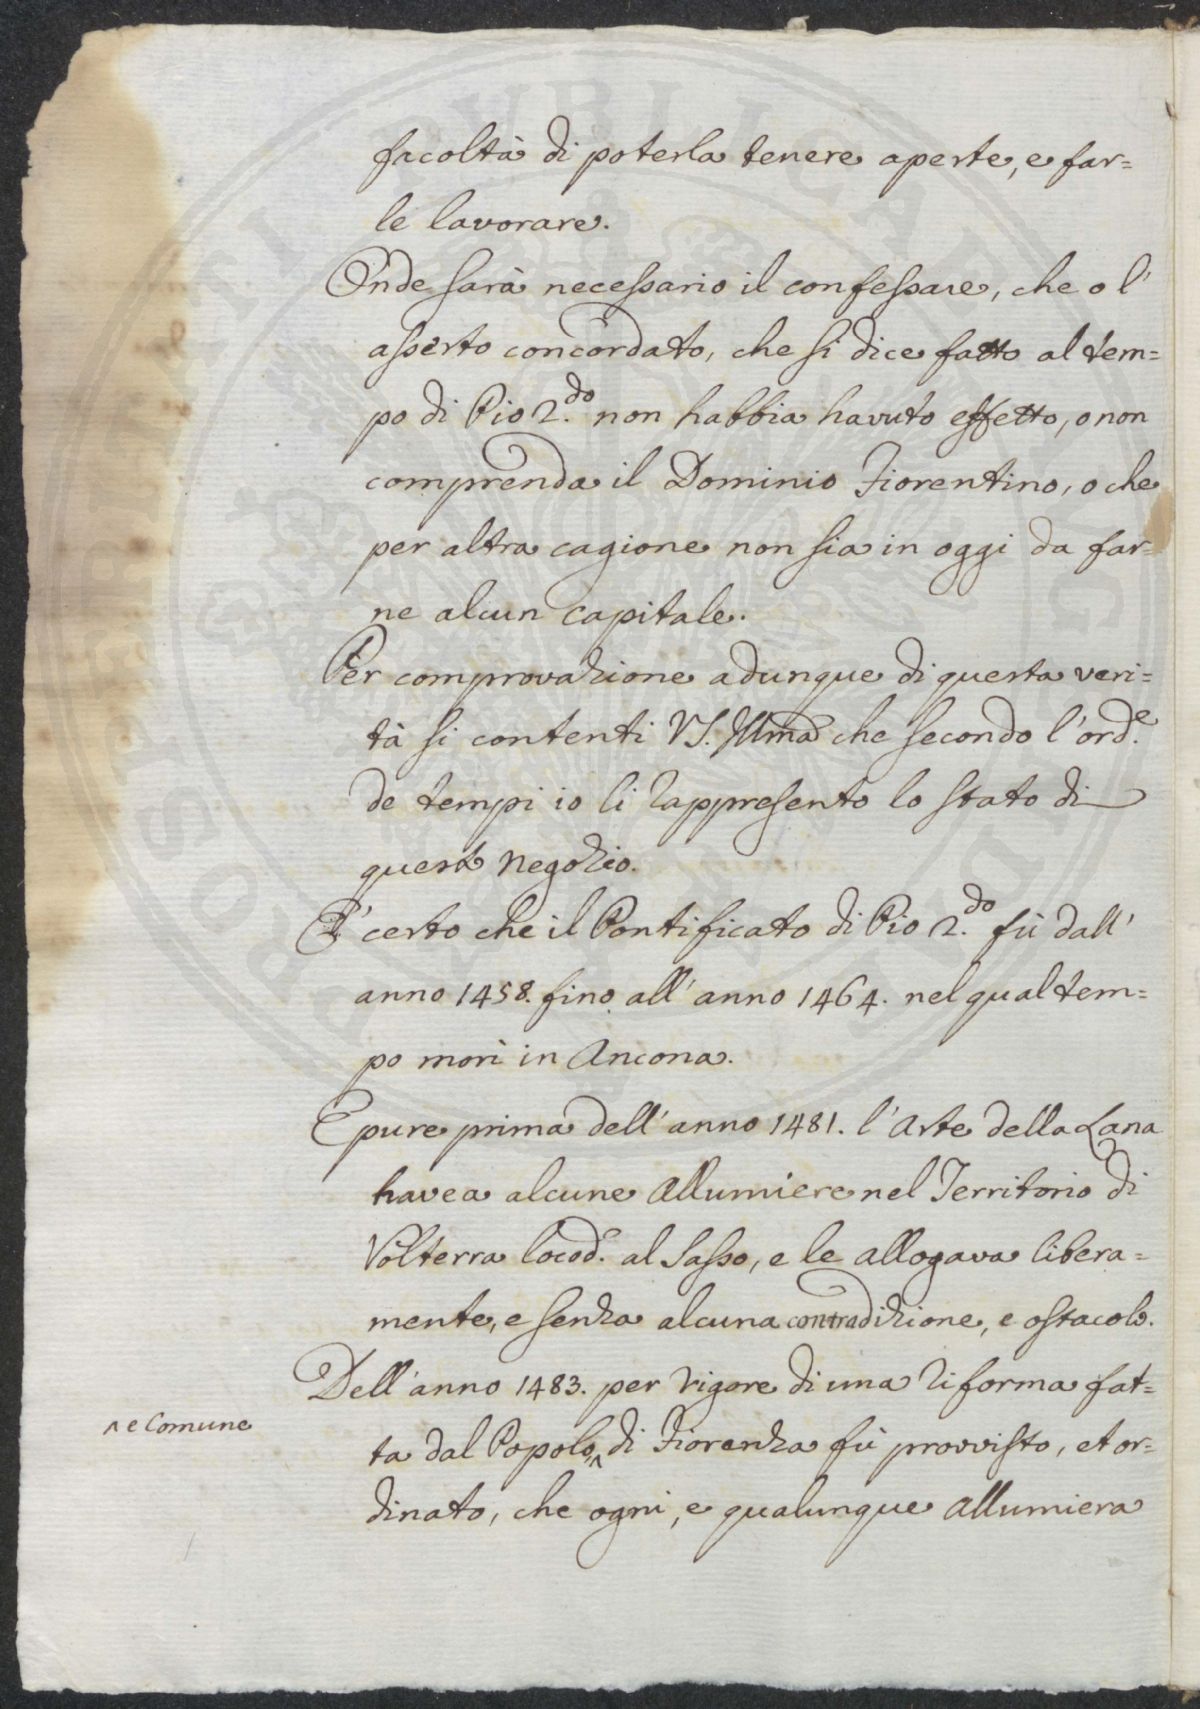 facoltà di poterla tenere aperte, e far=
le lavorare.
Onde sarà necessario il confessare, che o l'
asserto concordato, che si dice fatto al tem=
po di Pio 2.do non habbia havuto effetto, o non
comprenda il Dominio Fiorentino, o che
per altra cagione non sia in oggi da far=
ne alcun capitale.
Per comprovazione adunque di questa veri=
tà si contenti VS. Illma che secondo l'ord.e
de tempi io li rappresento lo stato di
questo negozio.
E' certo che il Pontificato di Pio 2.do fù dall'
anno 1458. fino all' anno 1464. nel qual tem=
po morì in Ancona.
E pure prima dell' anno 1481. l' Arte della Lana
havea alcune Allumiere nel Territorio di
Volterra locod. al Sasso, e le allogava libera=
mente, e senza alcuna contradizione, e ostacolo.
Dell' anno 1483. per vigore di una riforma fat=
^ e Comune
ta dal Popolo ^ di Fiorenza fù provvisto, et or=
dinato, che ogni, e qualunque Allumiera